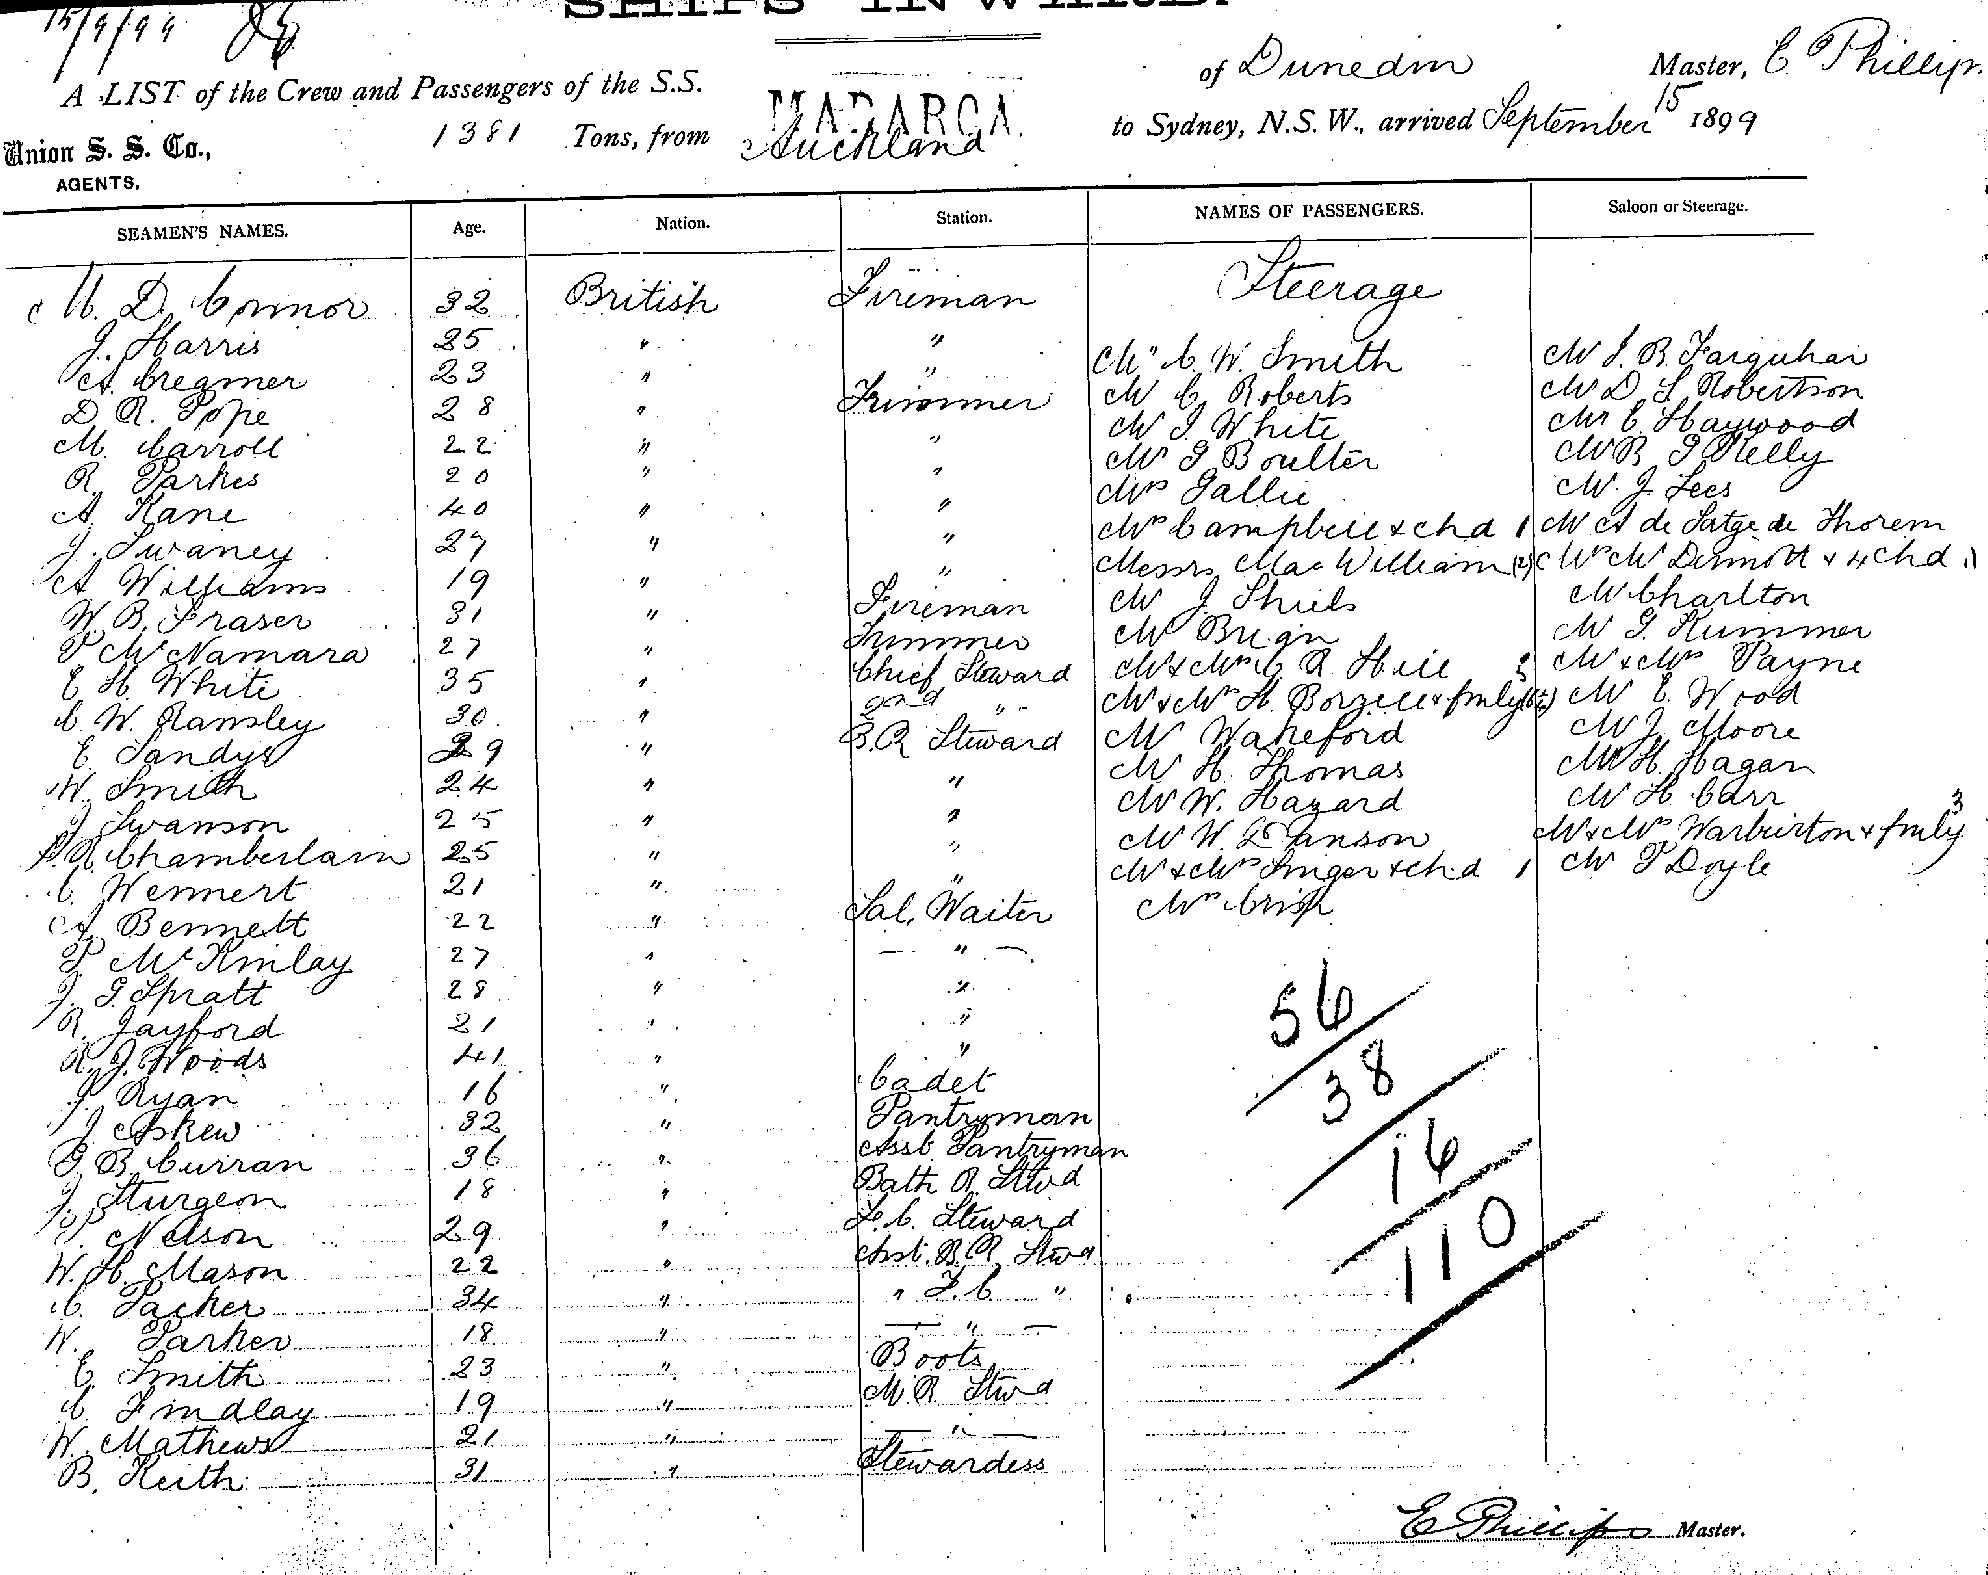 15/9/99
SHIPS INWARD.
A LIST of the Crew and Passengers of the S.S. MARAROA of Dunedin Master, E Phillips
Union S. S. Co., 1381 Tons, from Auckland to Sydney, N.S.W., arrived September 15 1899
AGENTS,
SEAMEN'S NAMES. Age. Nation. Station. NAMES OF PASSENGERS. Saloon or Steerage.
D Connor 32 British Fireman Steerage
J. Harris 25 " "
A Cregmer 23 " " Mr C. W. Smith Mr J. B. Farquhar
D R. Pope 28 " Trimmer Mr C Roberts Mr D S Robertson
M. Carroll 22 " " Mr J White Mr C. Haywood
R. Parkes 20 " " Mr G Boulter Mr B J Kelly
A. Kane 40 " " Mrs Gallie Mr. J. Lees
J. Swaney 27 " " Mrs Campbell & chd 1 Mr A de Satge de Thorem
A Williams 19 " " Messrs MacWilliam (2) Mrs McDermott & 4 chd
W. B. Fraser 31 " Fireman Mr J. Shiels Mr Charlton
P McNamara 27 " Trimmer Mr Mr G. Kummer
E H. White 35 " Chief Steward Mr & Mrs C R Hill Mr & Mrs Payne
C W. Ramsley 30 " 2nd " Mr & Mrs H. & fmly Mr E Wood
E Sandys 29 " B.R Steward Mr Wakeford Mr J. Moore
W. Smith 24 " " Mr H. Thomas Mr H. Hagan
J Swanson 25 " " Mr W. Hazard Mr H Carr
R Chamberlain 25 " " Mr W. Mr & Mrs Warburton & fmly 3
C. Wennert 21 " " Mr & Mrs Singer & chd 1 Mr P Doyle
A Bennett 22 " Sal. Waiter Mrs Crisp
P McKinlay 27 " "
J. G. Spratt 28 " "
R. Jayford 21 " "
R. J. Woods 41 " "
J Ryan 16 " Cadet
J Askew 32 " Pantryman
G B. Curran 36 " Asst. Pantryman
J. Sturgeon 18 " Bath R. Stwd
Nelson 29 " F.C. Steward
W. H. Mason 22 " Asst. B.R. Stwd
C. Packer 34 " " F.C. "
W. Parker 18 " "
E. Smith 23 " Boots
C. Findlay 19 " M.R. Stwd
W. Mathews 21 " "
B. Keith 31 " Stewardess
56
38
16
110
E Phillips Master.